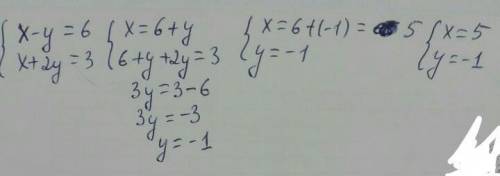 { x-y=6
x+2y=3
{ x=6+y
6+y+2y=3
3y=3-6
3y=-3
y=-1
{ x=6+(-1)= 5
y=-1
{ x=5
y=-1